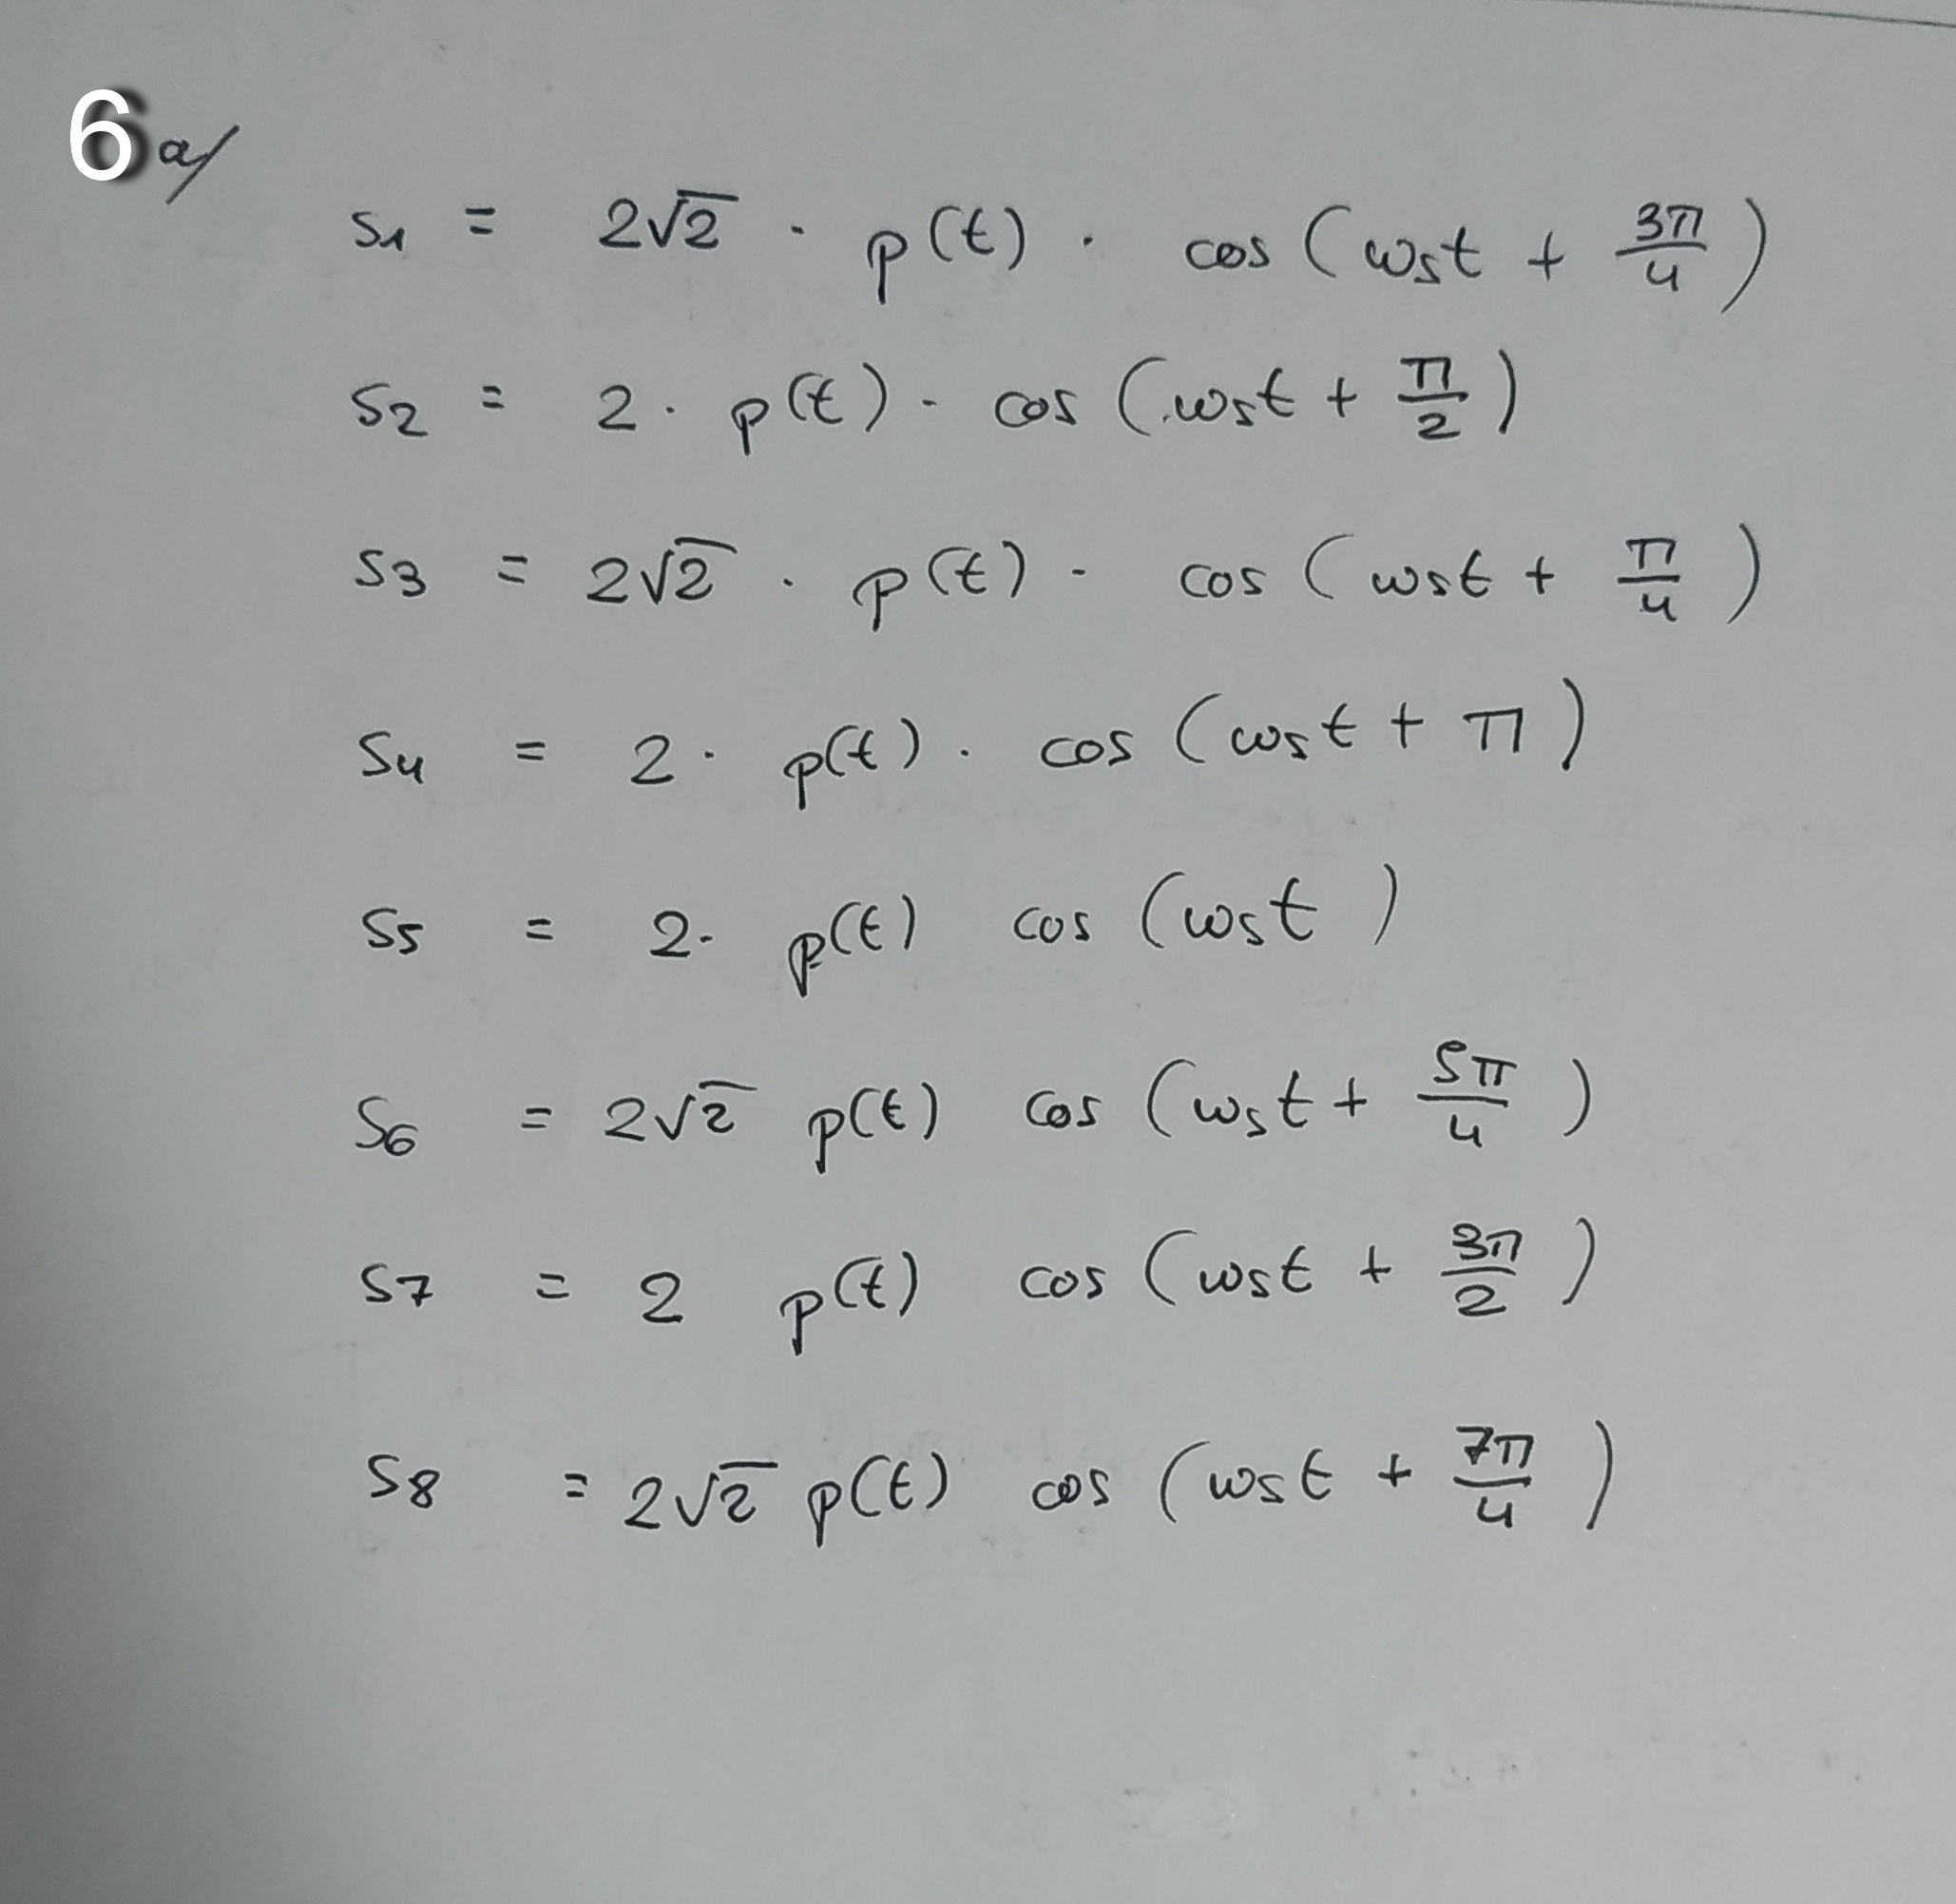 6 a/
s1 = 2√2 · p(t) · cos (ωst + 3π/4)
s2 = 2 · p(t) · cos (ωst + π/2)
s3 = 2√2 · p(t) · cos (ωst + π/4)
s4 = 2 · p(t) · cos (ωst + π)
s5 = 2 · p(t) cos (ωst)
s6 = 2√2 p(t) cos (ωst + 5π/4)
s7 = 2 p(t) cos (ωst + 3π/2)
s8 = 2√2 p(t) cos (ωst + 7π/4)